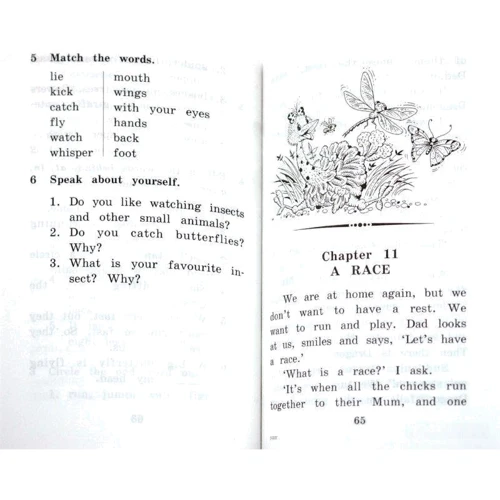 5 Match the words.
lie mouth
kick wings
catch with your eyes
fly hands
watch back
whisper foot
6 Speak about yourself.
1. Do you like watching insects
and other small animals?
2. Do you catch butterflies?
Why?
3. What is your favourite in-
sect? Why?
Chapter 11
A RACE
We are at home again, but we
don't want to have a rest. We
want to run and play. Dad looks
at us, smiles and says, 'Let's have
a race.'
'What is a race?' I ask.
'It's when all the chicks run
together to their Mum, and one
65